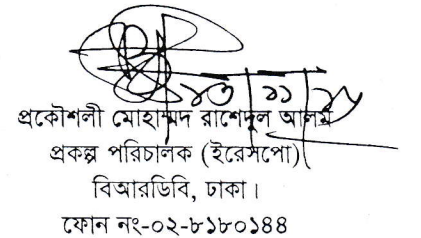 ১৩/১১/১৮
প্রকৌশলী মোহাম্মদ রাশেদুল আলম
প্রকল্প পরিচালক (ইরেসপো)
বিআরডিবি, ঢাকা।
ফোন নং-০২-৮১৮০১৪৪